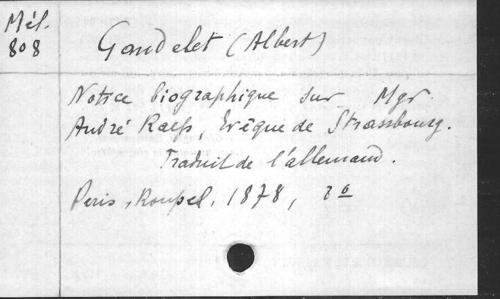 Mél.
808
Gandelet (Albert)
Notice biographique sur Mgr
André Raess, Evêque de Strasbourg.
Traduit de l'allemand.
Paris, Roupel, 1878, 8º